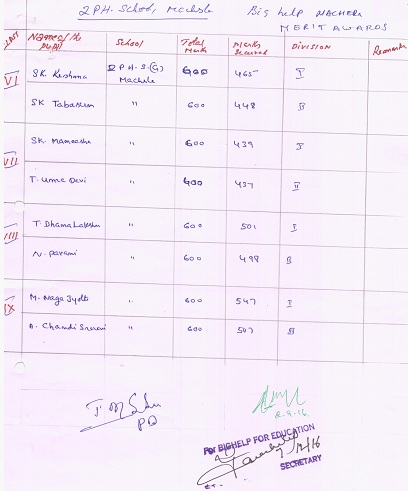 ZPH. School, Machela Big help MACHERA
MERIT AWARDS
Name of the Pupil School Total Marks Marks Secured DIVISION Remarks
VI SK. Reshma Z P H. S. (G) Machela 600 465 I
SK Tabassum " 600 448 II
VII SK. Mameesha " 600 439 I
T. Uma Devi " 600 437 II
VIII T. Dhana Lakshmi " 600 501 I
N. Pavani " 600 498 II
IX M. Naga Jyothi " 600 547 I
" 600 507 II
8.9.16
For BIGHELP FOR EDUCATION
SECRETARY